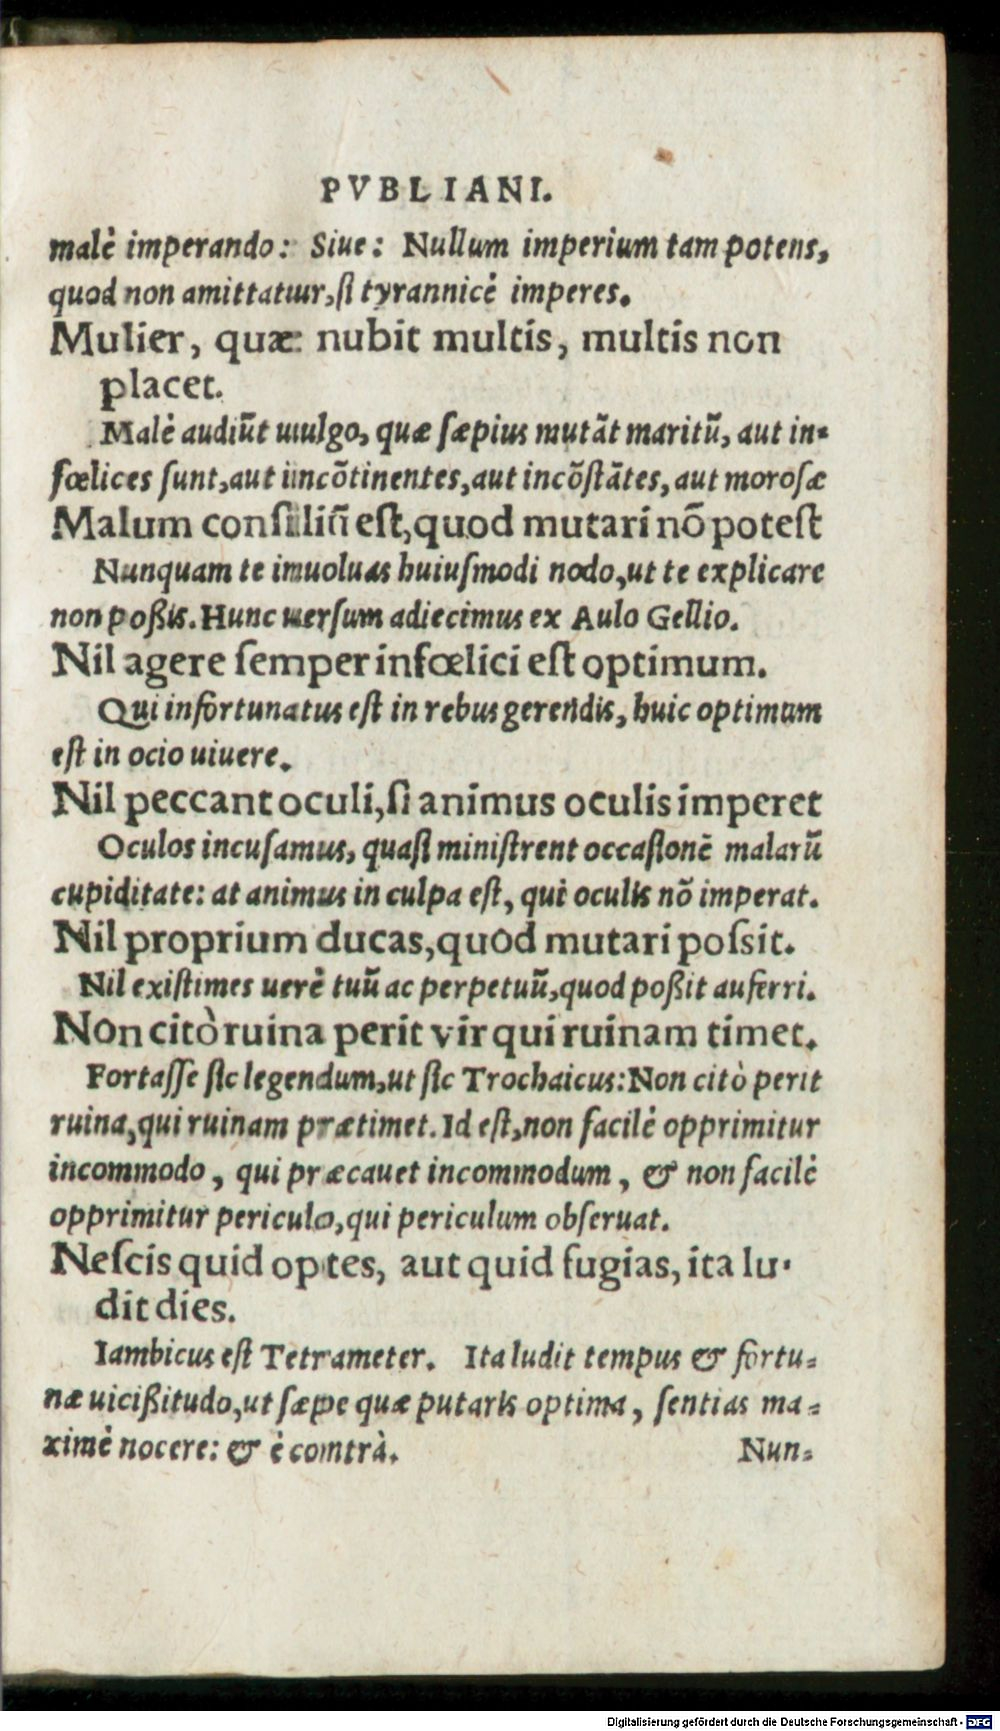 PVBLIANI.
malè imperando: Siue: Nullum imperium tam potens,
quod non amittatur, ſi tyrannicè imperes.
Mulier, quæ nubit multis, multis non
placet.
Malè audiūt uulgo, quæ ſæpius mutāt maritū, aut in-
fœlices ſunt, aut incōtinentes, aut incōſtātes, aut moroſæ
Malum conſiliū eſt, quod mutari nō poteſt
Nunquam te inuoluas huiuſmodi nodo, ut te explicare
non poßis. Hunc uerſum adiecimus ex Aulo Gellio.
Nil agere ſemper infœlici eſt optimum.
Qui infortunatus eſt in rebus gerendis, huic optimum
eſt in ocio uiuere.
Nil peccant oculi, ſi animus oculis imperet
Oculos incuſamus, quaſi miniſtrent occaſionē malarū
cupiditate: at animus in culpa eſt, qui oculis nō imperat.
Nil proprium ducas, quod mutari poſsit.
Nil exiſtimes uerè tuū ac perpetuū, quod poßit auferri.
Non citò ruina perit vir qui ruinam timet.
Fortaſſe ſic legendum, ut ſic Trochaicus: Non citò perit
ruina, qui ruinam prætimet. Id eſt, non facilè opprimitur
incommodo, qui præcauet incommodum, & non facilè
opprimitur periculo, qui periculum obſeruat.
Neſcis quid optes, aut quid fugias, ita lu-
dit dies.
Iambicus eſt Tetrameter. Ita ludit tempus & fortu-
næ uicißitudo, ut ſæpe quæ putaris optima, ſentias ma-
ximè nocere: & è contrà.
Nun-
Digitalisierung gefördert durch die Deutsche Forschungsgemeinschaft - DFG